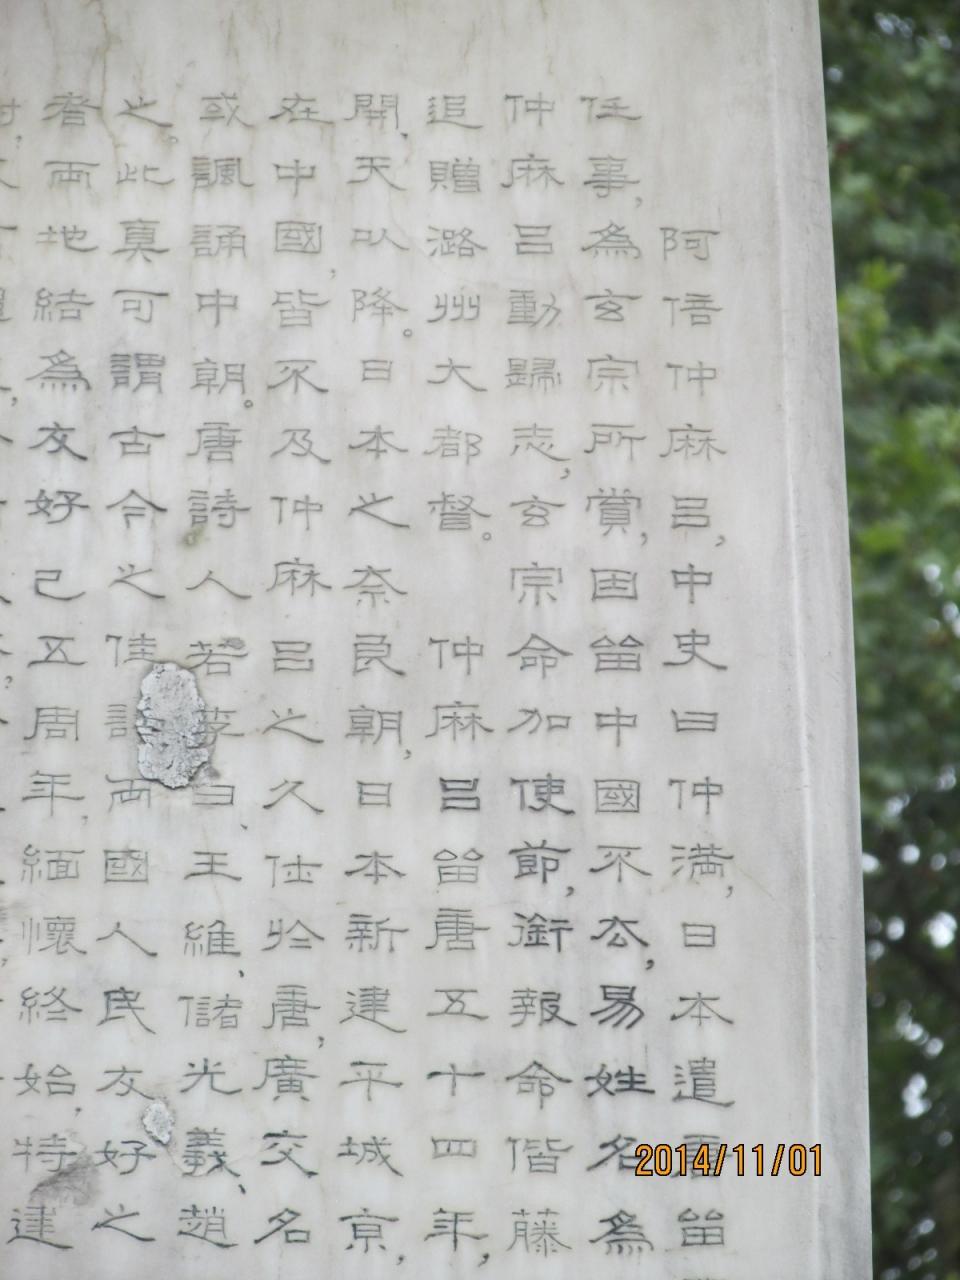 阿倍仲麻呂,中史曰仲満,日本遣唐留
任事,為玄宗所賞,因留中國不去,易姓名為
仲麻呂動歸志,玄宗命加使節,銜報命偕藤
追贈潞州大都督。仲麻呂留唐五十四年,
開,天以降。日本之奈良朝,日本新建平城京,
在中國,皆不及仲麻呂之久仕於唐,廣交名
或諷誦中朝。唐詩人若李白、王維、儲光義、趙
之。此真可謂古今之佳話兩國人民友好之
者兩地結為友好已五周年,緬懷終始,特建
2014/11/01